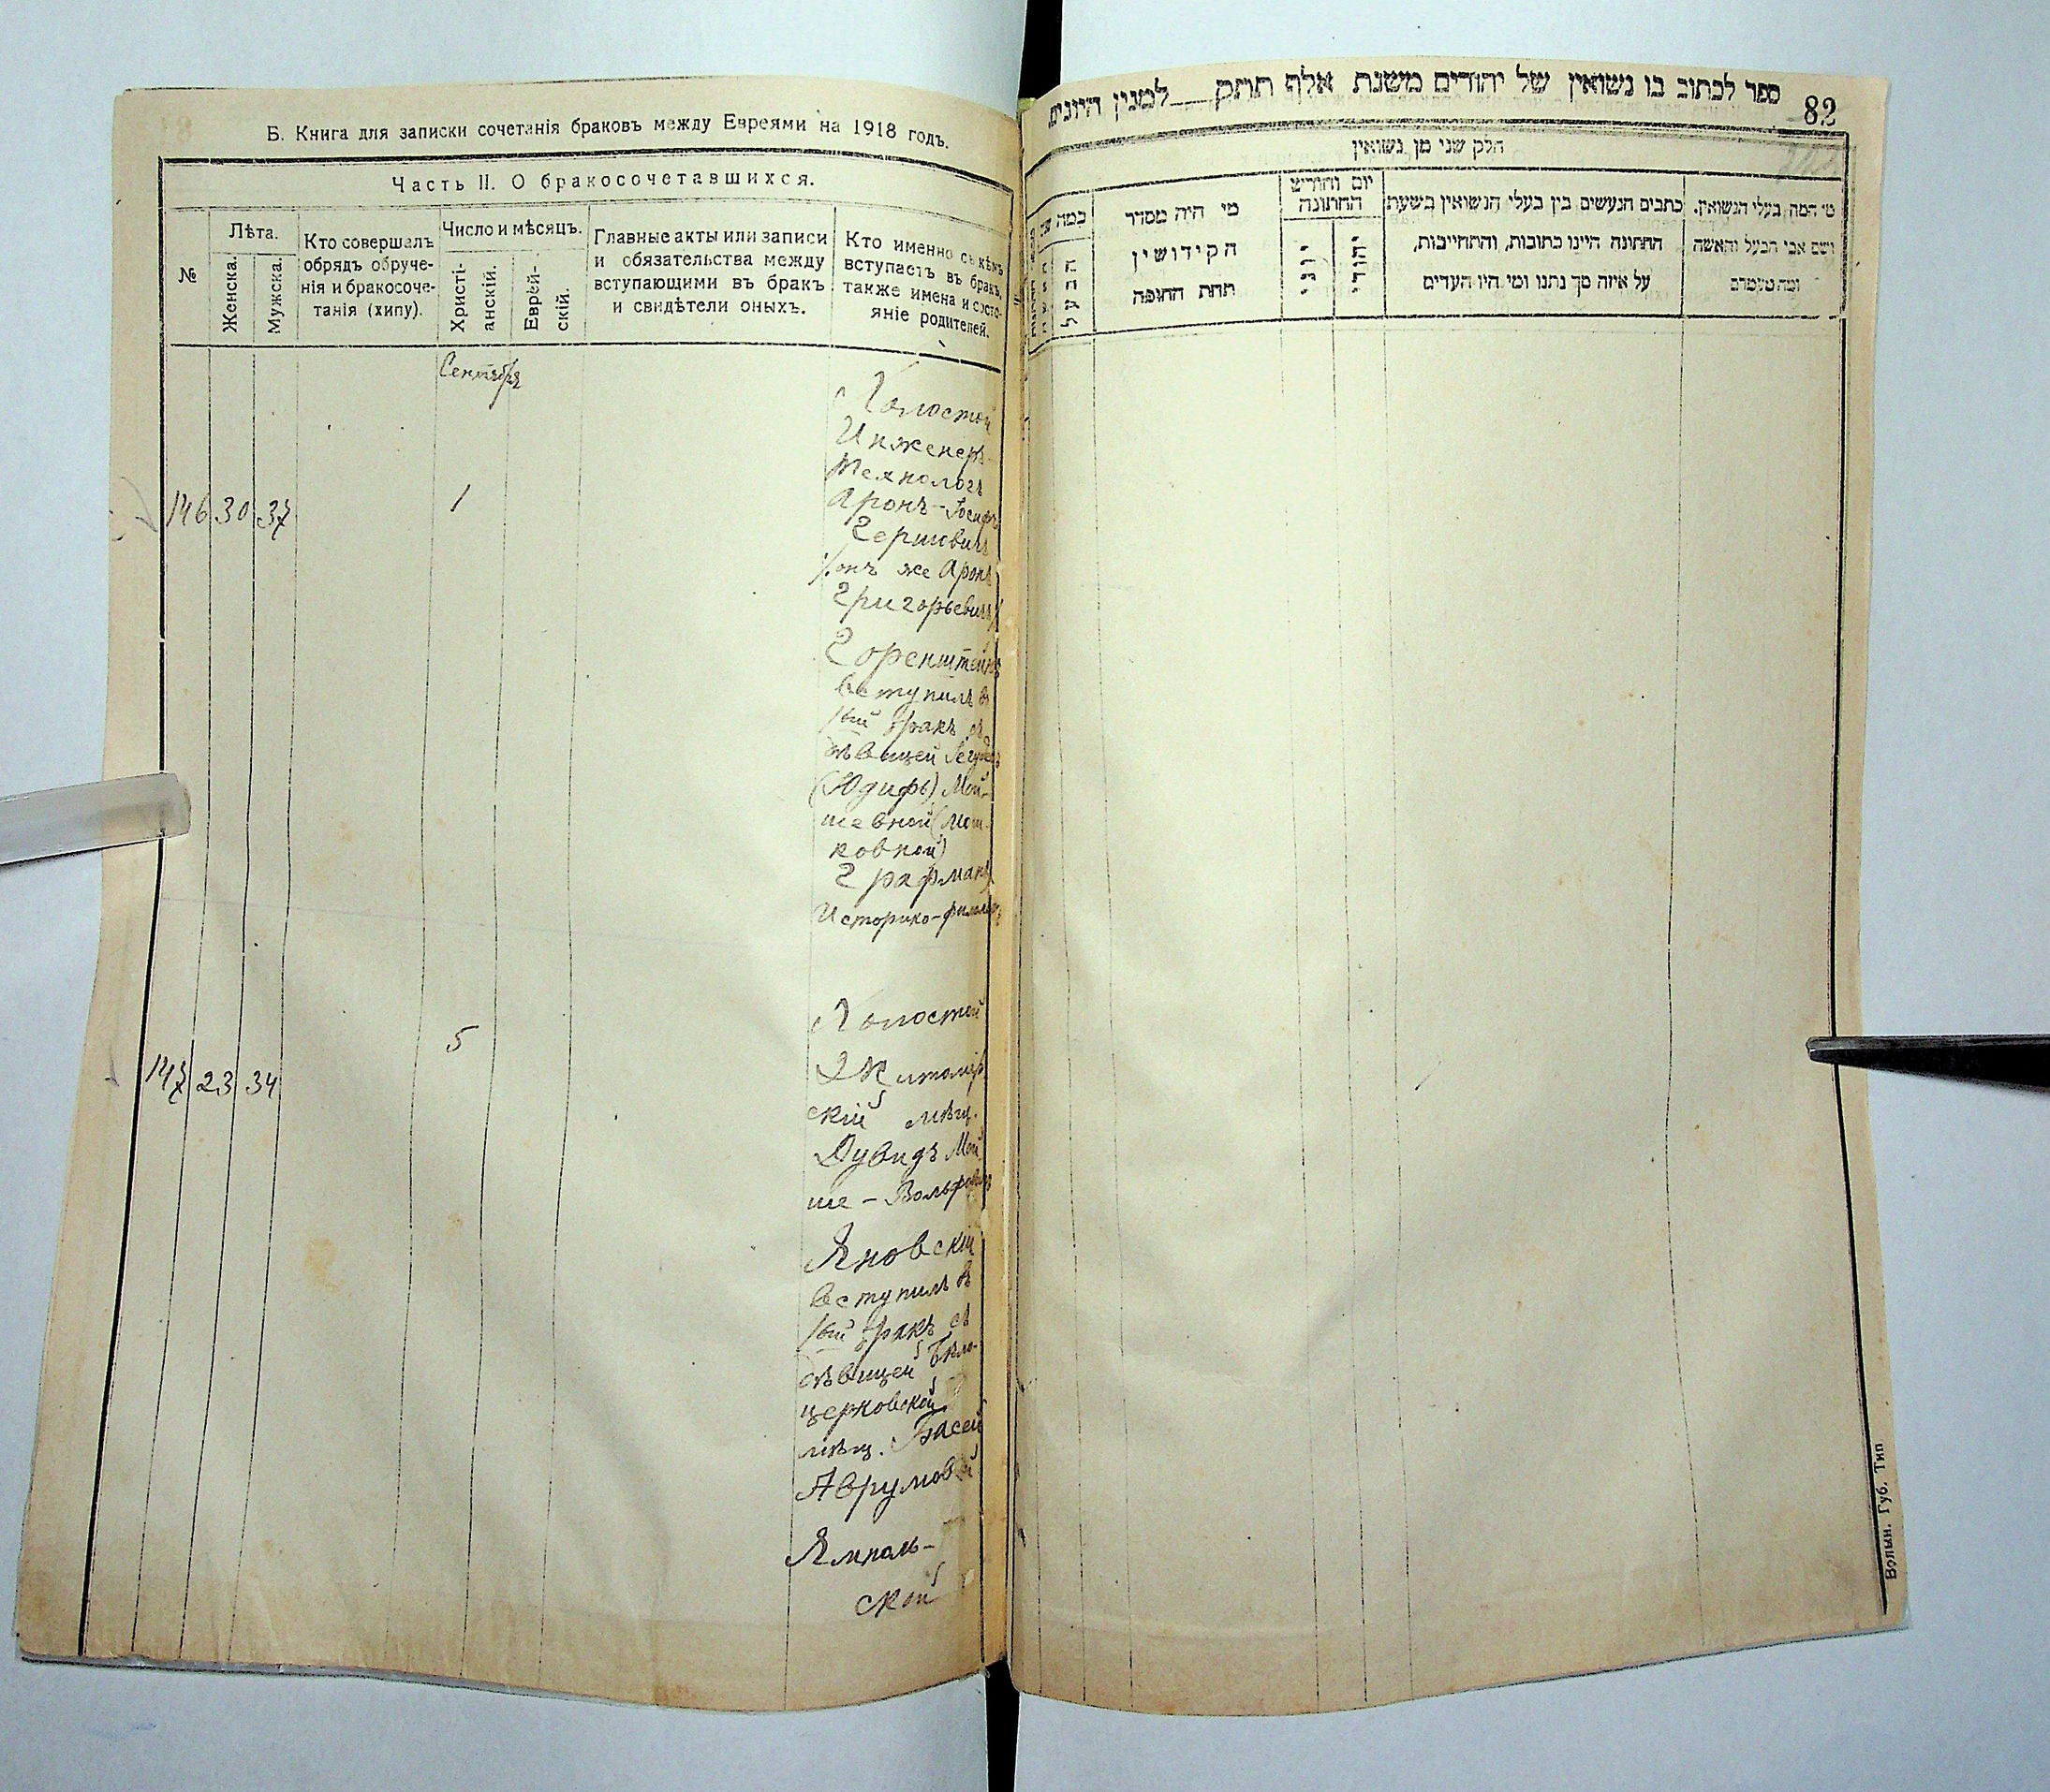 Б. Книга для записки сочетанія браковъ между Евреями на 1918 годъ.
Часть II. О бракосочетавшихся.
№
Лѣта.
Женска.
Мужска.
Кто совершалъ
обрядъ обруче-
нія и бракосоче-
танія (хипу).
Число и мѣсяцъ.
Христі-
анскій.
Еврей-
скій.
Главные акты или записи
и обязательства между
вступающими въ бракъ
и свидѣтели оныхъ.
Кто именно съ кѣмъ
вступаетъ въ бракъ,
также имена и состо-
яніе родителей.
Сентября
146 30 37 1
Холостой
Инженеръ-
Технологъ
Аронъ-Іосифъ
Гершовичъ
/онъ же Аронъ
Григорьевичъ/
Горенштейнъ
вступилъ въ
1ый бракъ съ
дѣвицей
(Юдифь) Мой-
шевной (Мош-
ковной)
Графманъ
Историко-
147 23 34 5
Холостой
Житомір-
скій мѣщ.
Дувидъ Мой-
ше-Вольфовичъ
Яновскій
вступилъ въ
1ый бракъ съ
дѣвицей Бѣло-
церковской
мѣщ. Басей
Аврумовой
Ямполь-
ской
ספר לכתוב בו נשואין של יהודים משנת אלף תתק___למנין היונים
82
חלק שני מן נשואין
כמה שנים
האשה
הבעל
מי היה מסדר
הקידושין
תחת החופה
יום וחודש
החתונה
יווני
יהודי
כתבים הנעשים בין בעלי הנשואין בשעת
החתונה היינו כתובות, והתחייבות,
על איזה סך נתנו ומי היו העדים
מי המה בעלי הנשואין.
ושם אבי הבעל והאשה
ומה מעמדם
Волын. Губ. Тип.